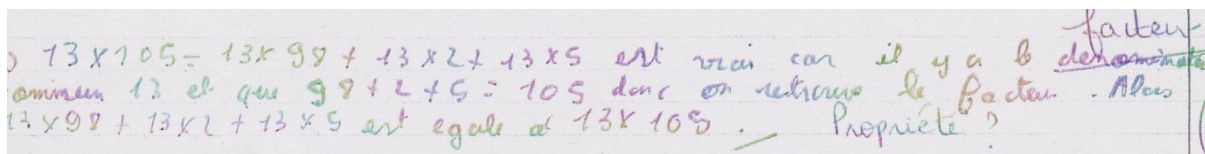 facteur
) 13 x 105 = 13 x 98 + 13 x 2 + 13 x 5 est vrai car il y a le denominate
ommun 13 et que 98 + 2 + 5 = 105 donc on retrouve le facteur. Alors
13 x 98 + 13 x 2 + 13 x 5 est egale a 13 x 105. Propriété ?